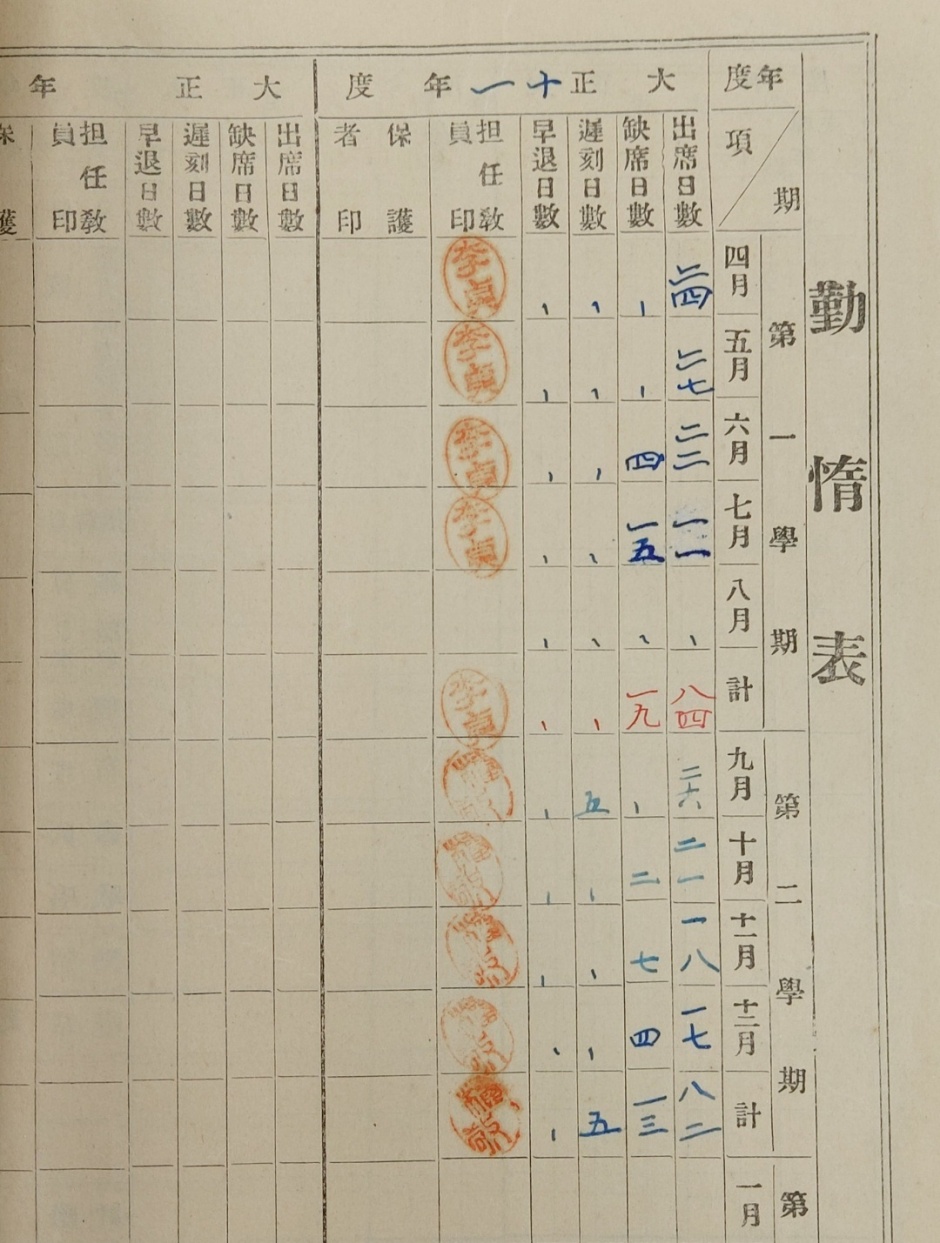 勤惰表
年度
項 期
第一學期
四月
五月
六月
七月
八月
計
第二學期
九月
十月
十一月
十二月
計
第
一月
大正十一年度
出席日數
二四
二七
二二
一一
、
八四
二六
二一
一八
一七
八二
缺席日數
、
、
四
一五
、
一九
、
二
七
四
一三
遲刻日數
、
、
、
、
、
、
五
、
、
、
五
早退日數
、
、
、
、
、
、
、
、
、
、
、
担任教員印
保護者印
大正 年
出席日數
缺席日數
遲刻日數
早退日數
担任教員印
保護